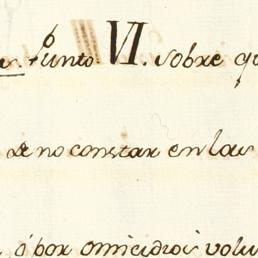 Punto VI. sobre qu
de no constar en las
, ó por omicidios volu